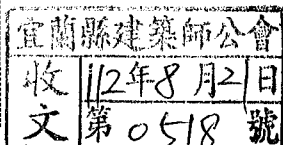 宜蘭縣建築師公會
收 112年8月21日
文 第0518號